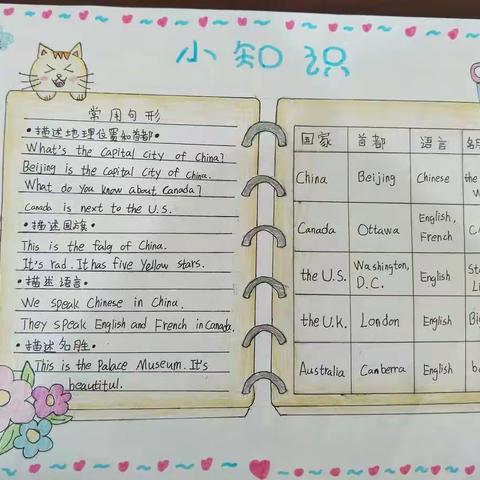 小知识
常用句形
•描述地理位置和首都•
What's the Capital city of China?
Beijing is the Capital city of China.
What do you know about Canada?
Canada is next to the U.S.
•描述国旗•
This is the falg of China.
It's rad. It has five Yellow stars.
•描述语言•
We speak Chinese in China.
They speak English and French in Canada.
•描述名胜•
This is the Palace Museum. It's
beautiful.
国家 首都 语言
China Beijing Chinese the
Canada Ottawa English, French
the U.S. Washington, D.C. English
the U.K. London English
Australia Canberra English